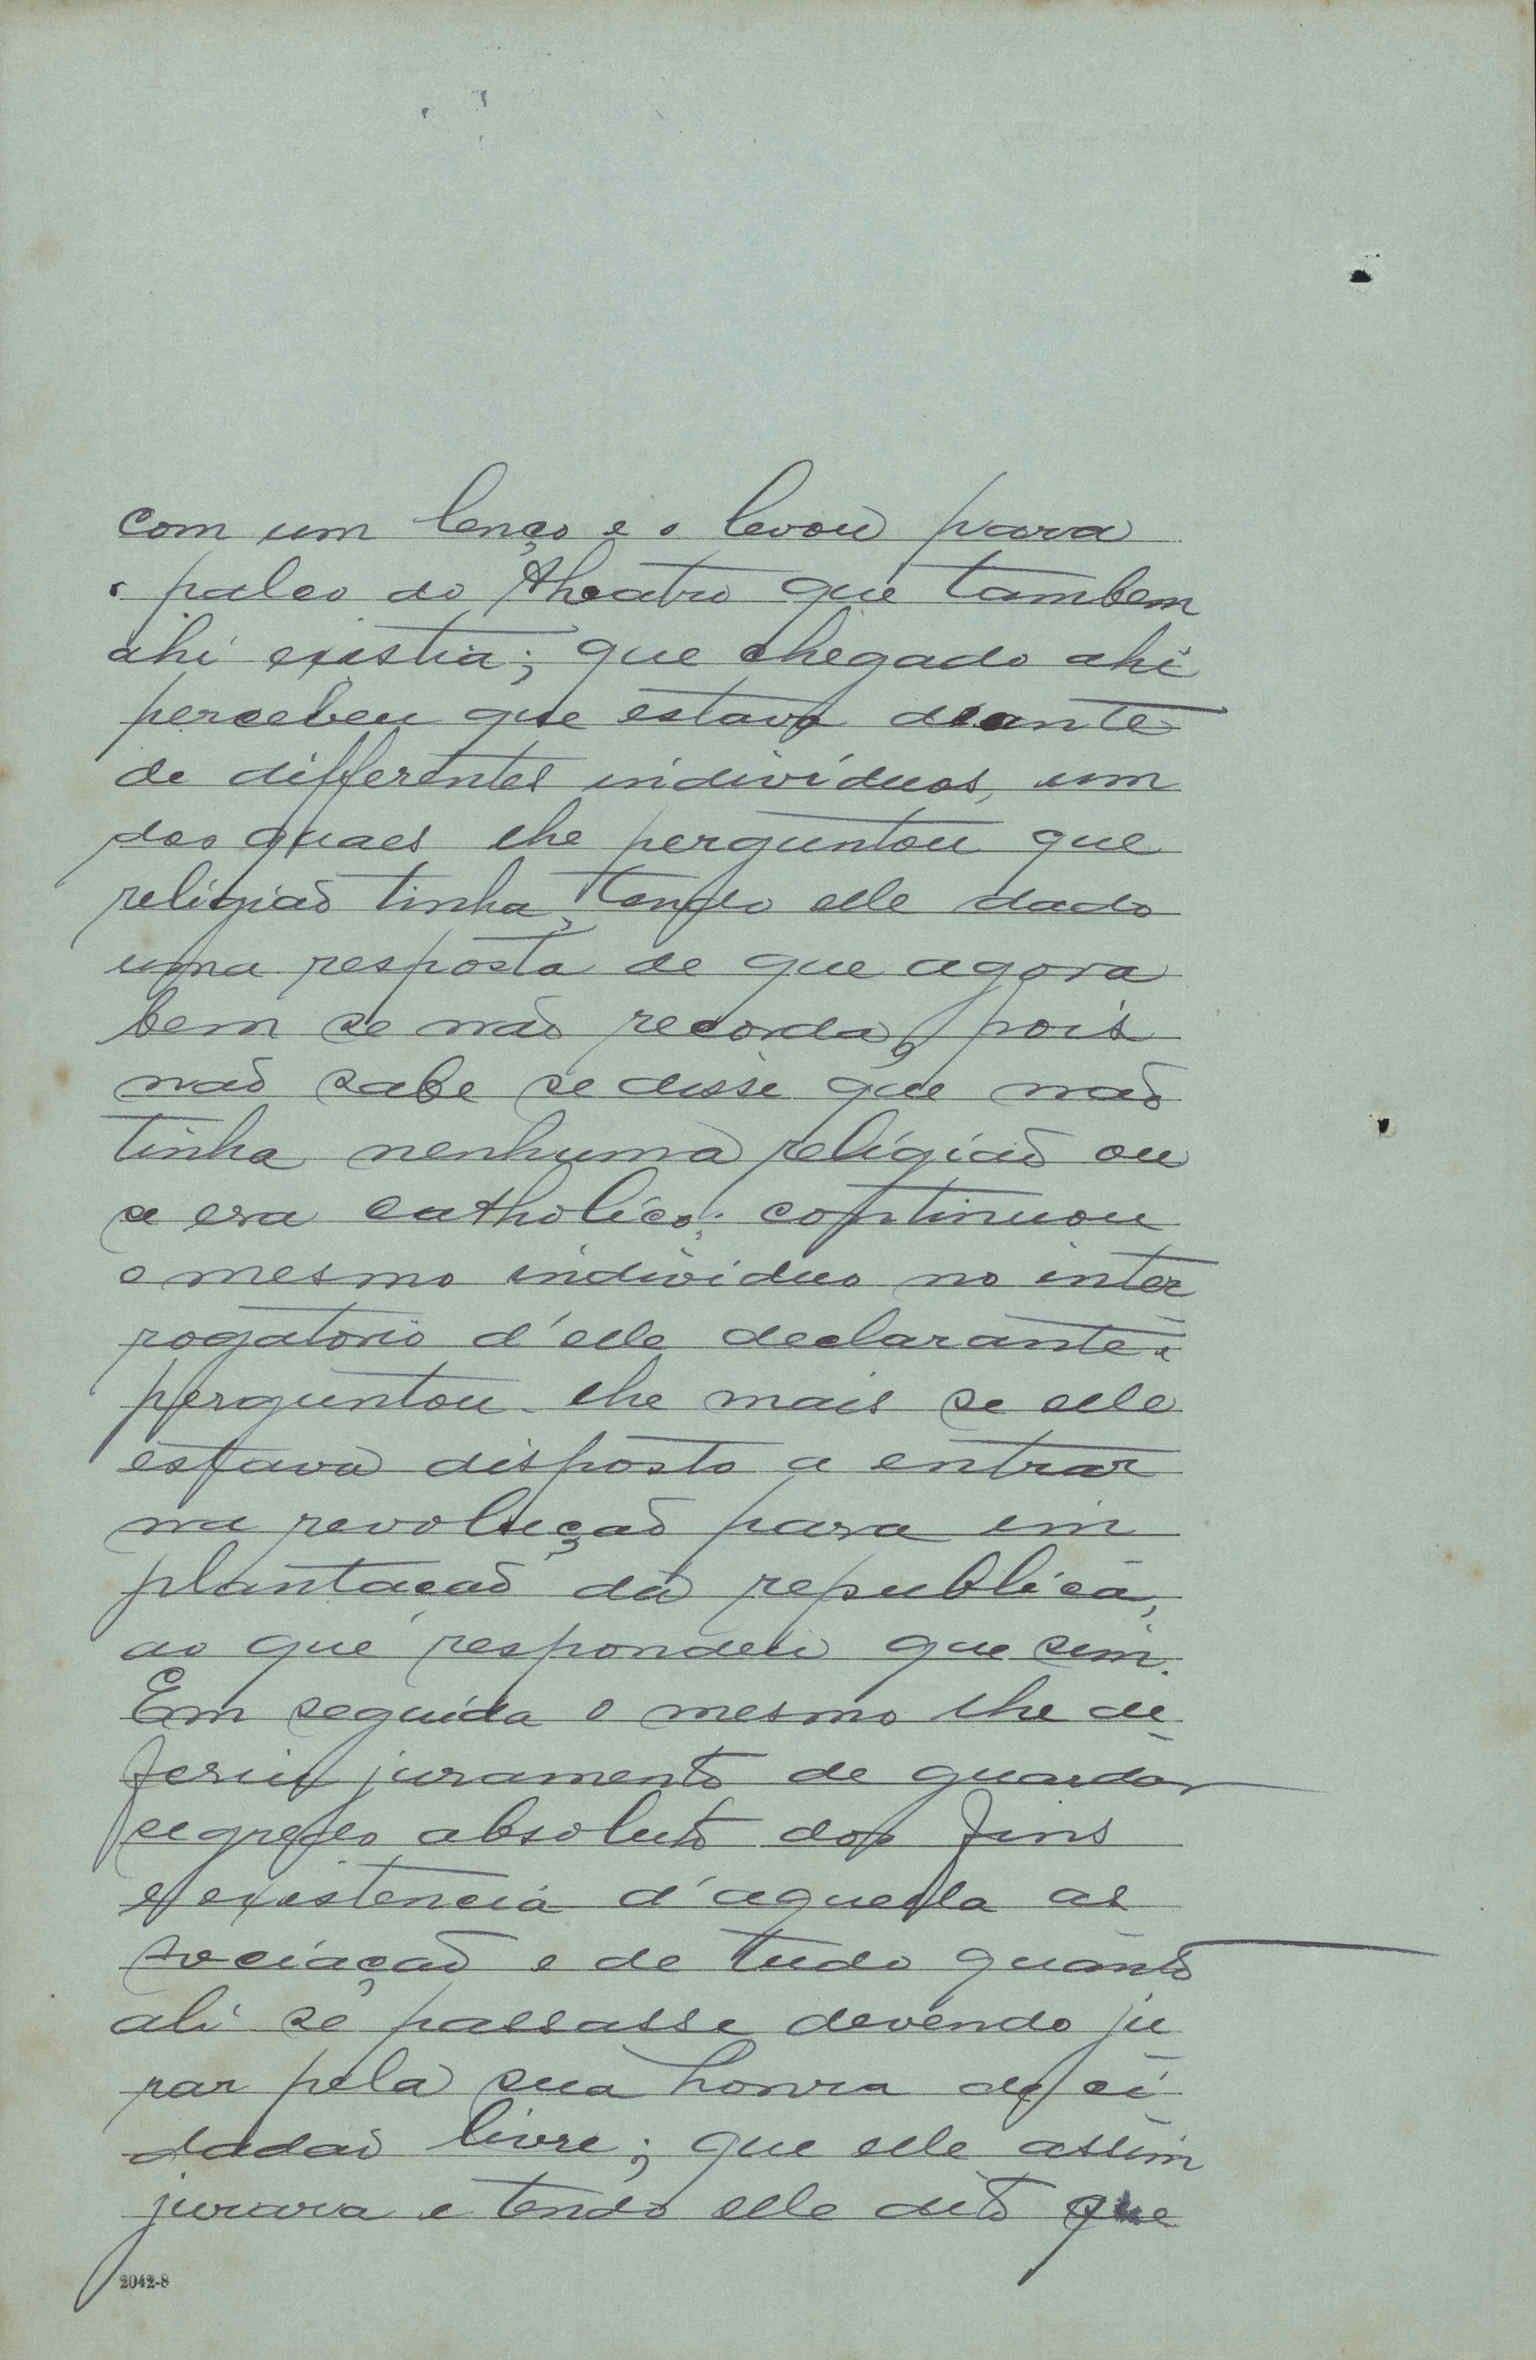 com um lenço e o levou para
o palco do theatro que tambem
ahi existia; que chegado ahi
percebeu que estava deante
de differentes individuos, um
dos quaes lhe perguntou que
religião tinha, tendo elle dado
uma resposta de que agora
bem se não recorda, pois
não sabe se disse que não
tinha nenhuma religião ou
se era catholico; continuou
o mesmo individuo no inter
rogatorio d'elle declarante e
perguntou-lhe mais se elle
estava disposto a entrar
na revolução para im
plantação da republica,
ao que respondeu que sim.
Em seguida o mesmo lhe de
feriu juramento de guardar
segredo absoluto dos fins
e existencia d'aquella as
sociação e de tudo quanto
ali se passasse devendo ju
rar pela sua honra de ci
dadão livre; que elle assim
jurara e tendo elle dito que
2042-8